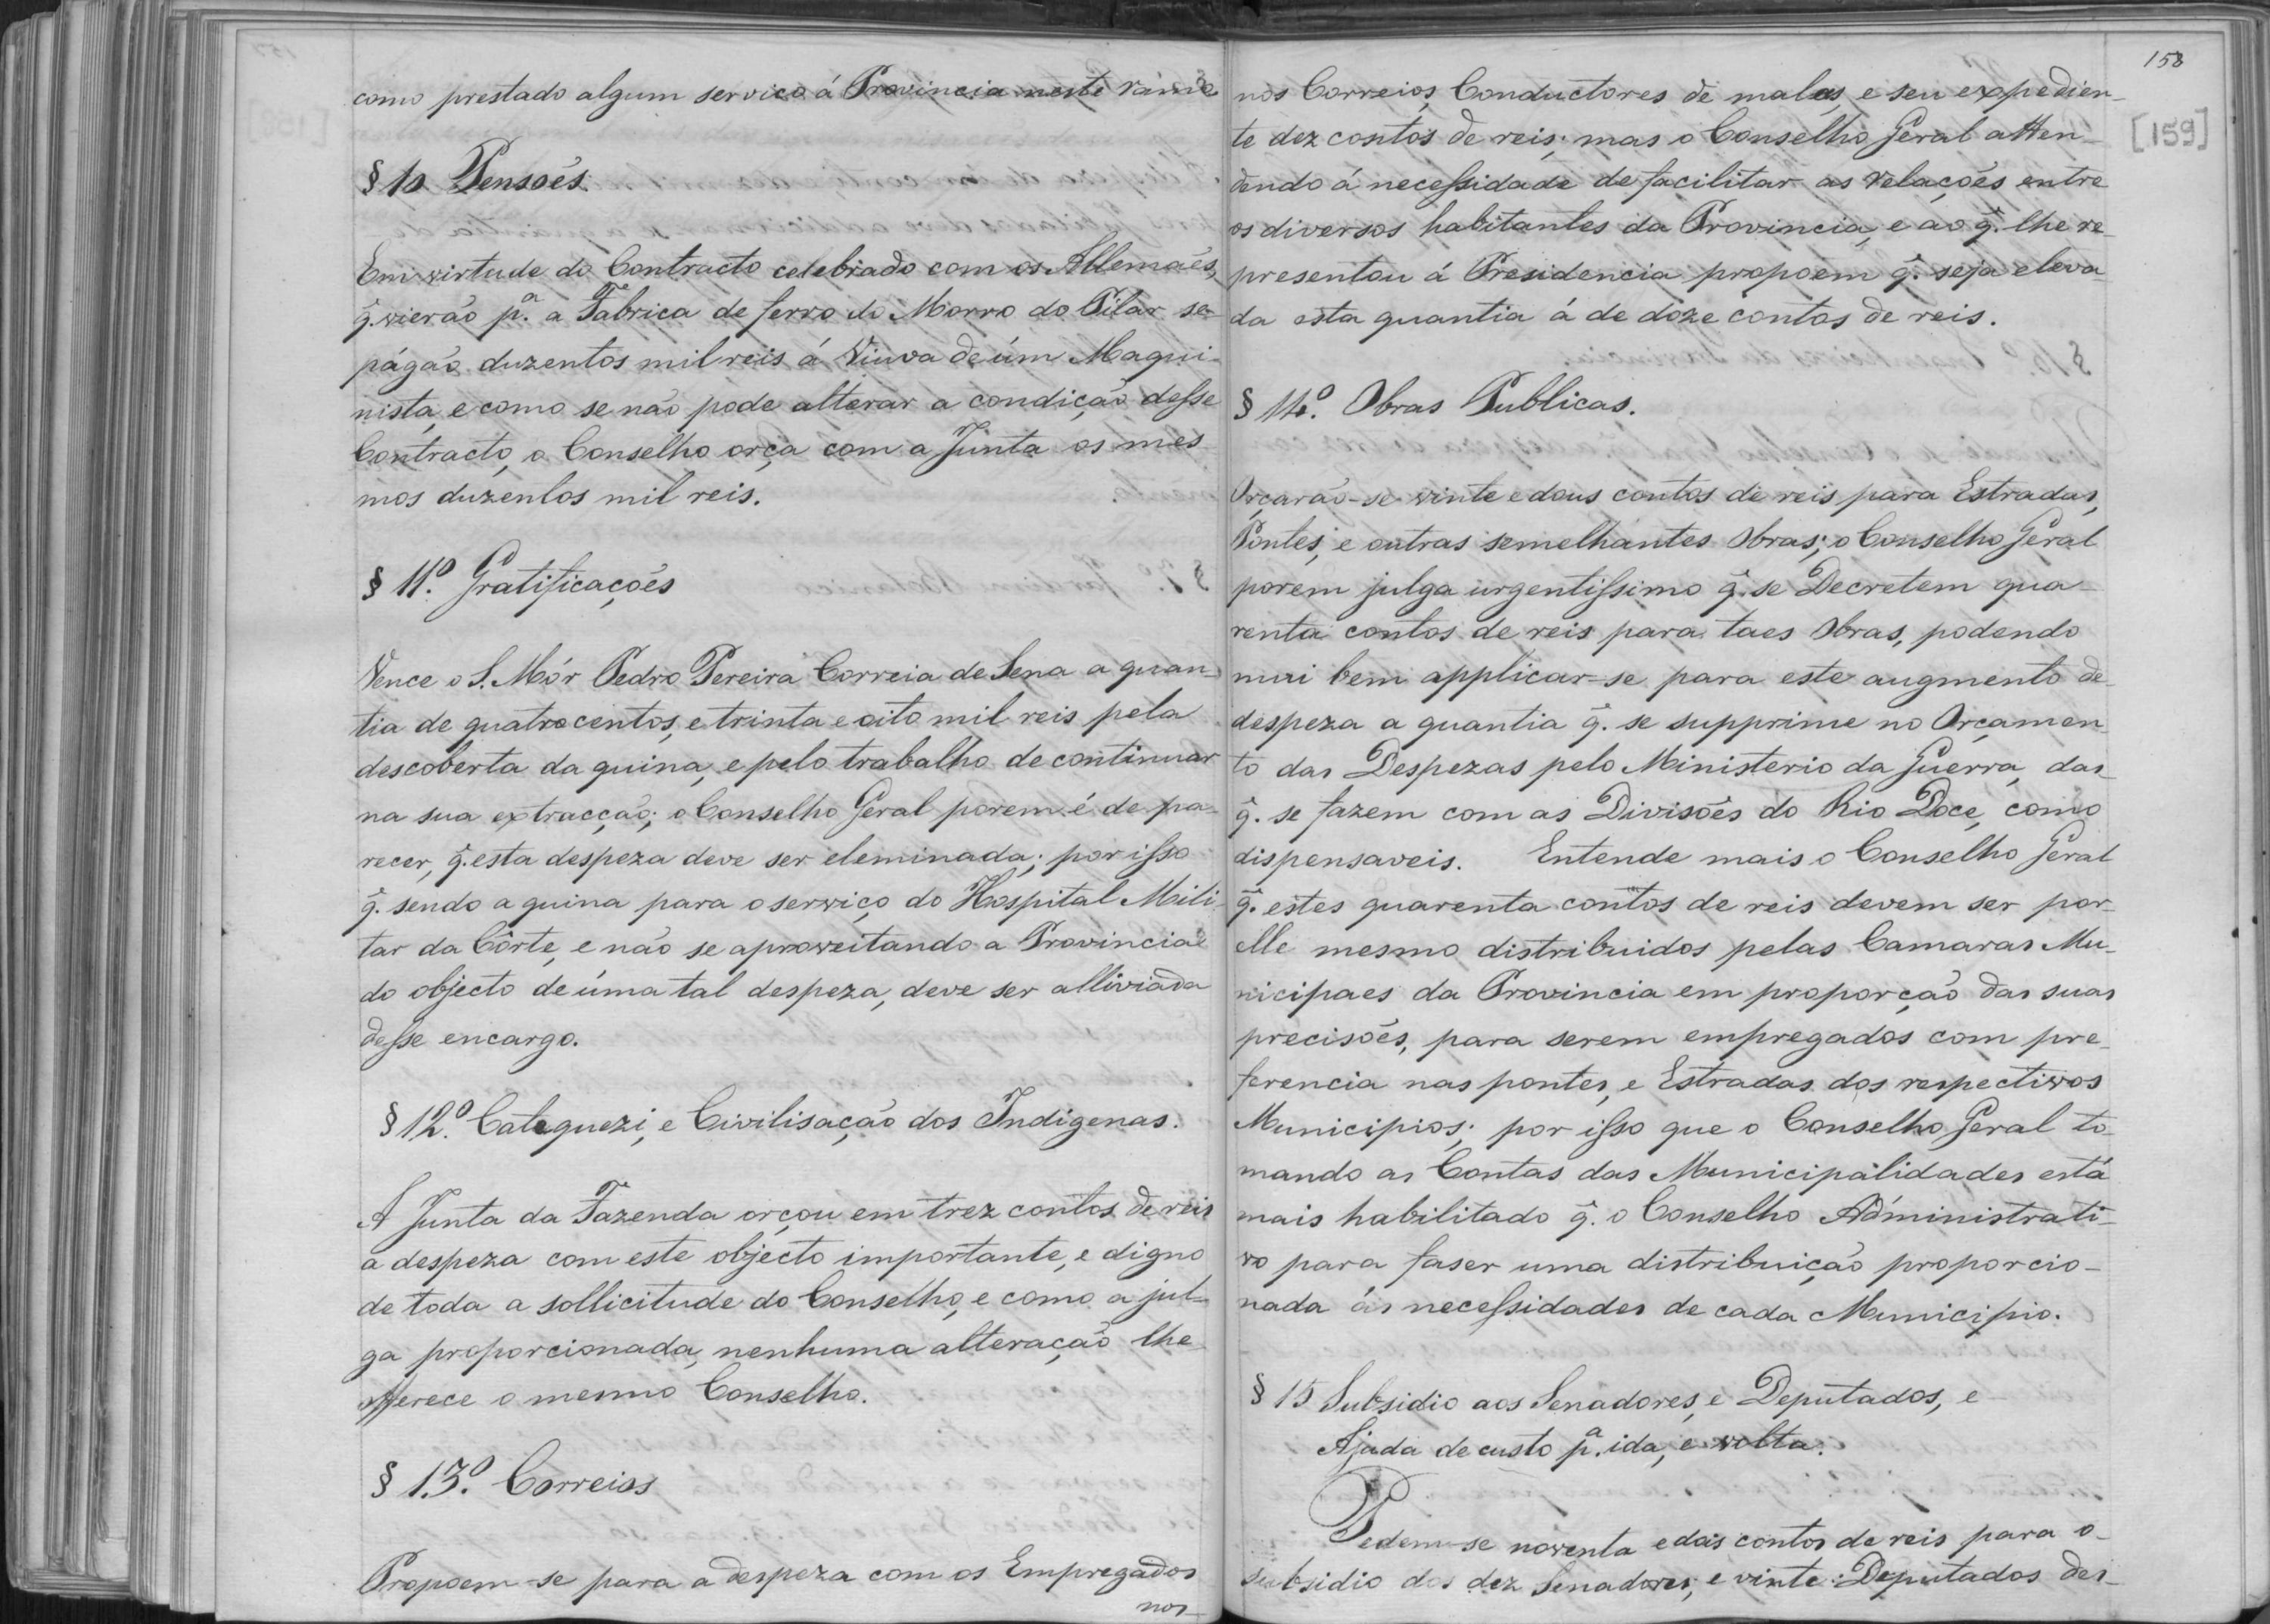 como prestado algum serviço á Provincia neste ramo
§ 10 Pensoẽs.
Em virtude do Contracto celebrado com os Allemaẽs,
q̃. vierão pª. a Fabrica de ferro do Morro do Pilar se
págão duzentos mil reis á Viuva de úm Maqui-
nista, e como se não pode alterar a condição desse
Contracto, o Conselho orça com a Junta os mes-
mos duzentos mil reis.
§ 11º. Gratificaçoẽs
Vence o S. Mór Pedro Pereira Correia de Sena a quan-
tia de quatrocentos, e trinta e oito mil reis pela
descoberta da quina, e pelo trabalho de continuar
na sua extracção; o Conselho Geral porem é de pa-
recer, q̃. esta despeza deve ser eleminada; por isso
q̃. sendo a quina para o serviço do Hospital Mili-
tar da Côrte, e não se aproveitando a Provincia
do objecto de úma tal despeza, deve ser alliviada
desse encargo.
§ 12º. Catequezi, e Civilisação dos Indigenas.
A Junta da Fazenda orçou em trez contos de reis
a despeza com este objecto importante, e digno
de toda a sollicitude do Conselho, e como a jul-
ga proporcionada, nenhuma alteração lhe
offerece o mesmo Conselho.
§ 13º. Correios
Propoem-se para a despeza com os Empregados
nos
158
[159]
nos Correios, Conductores de malas, e seu expedien-
te dez contos de reis; mas o Conselho Geral atten-
dendo á necessidade de facilitar as relaçoẽs entre
os diversos habitantes da Provincia, e ao q̃. lhe re-
presentou á Presidencia propoem q̃. seja eleva-
da esta quantia á de doze contos de reis.
§ 14º. Obras Publicas.
Orçarão-se vinte e dous contos de reis para Estradas,
Pontes, e outras semelhantes Obras; o Conselho Geral
porem julga urgentissimo q̃. se Decretem qua-
renta contos de reis para taes Obras, podendo
mui bem applicar-se para este augmento de
despeza a quantia q̃. se supprime no Orçamen-
to das Despezas pelo Ministerio da Guerra, das
q̃. se fazem com as Divisoẽs do Rio Doce, como
dispensaveis. Entende mais o Conselho Geral
q̃. estes quarenta contos de reis devem ser por
elle mesmo distribuidos pelas Camaras Mu-
nicipaes da Provincia em proporção das suas
precisoẽs, para serem empregados com pre-
ferencia nas pontes, e Estradas dos respectivos
Municipios; por isso que o Conselho Geral to-
mando as Contas das Municipalidades está
mais habilitado q̃. o Conselho Administrati-
vo para faser uma distribuição proporcio-
nada ás necessidades de cada Municipio.
§ 15 Subsidio aos Senadores, e Deputados, e
Ajuda de custo pª. ida, e volta.
Pedem-se noventa e dois contos de reis para o
subsidio dos dez Senadores, e vinte Deputados des-